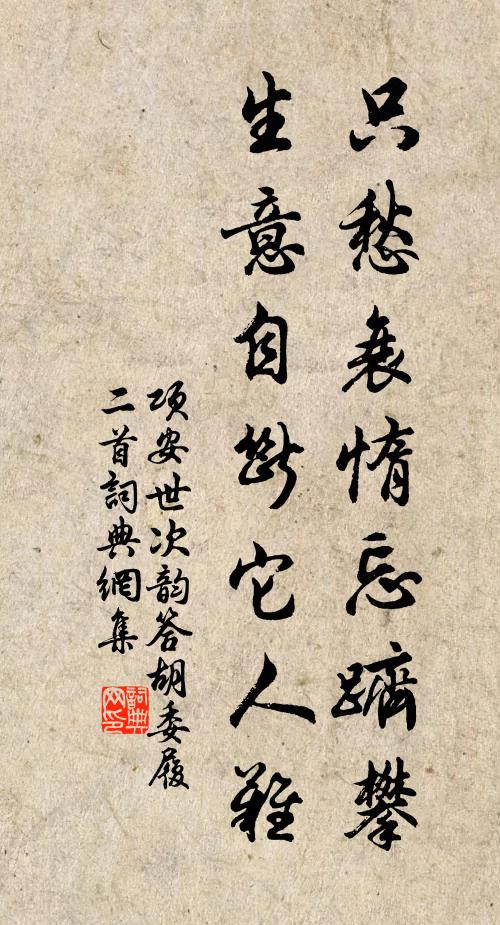 只愁衰惰忘躋攀
生意自斷它人難
項安世次韵答胡委履
二首詞典網集
詞典網印